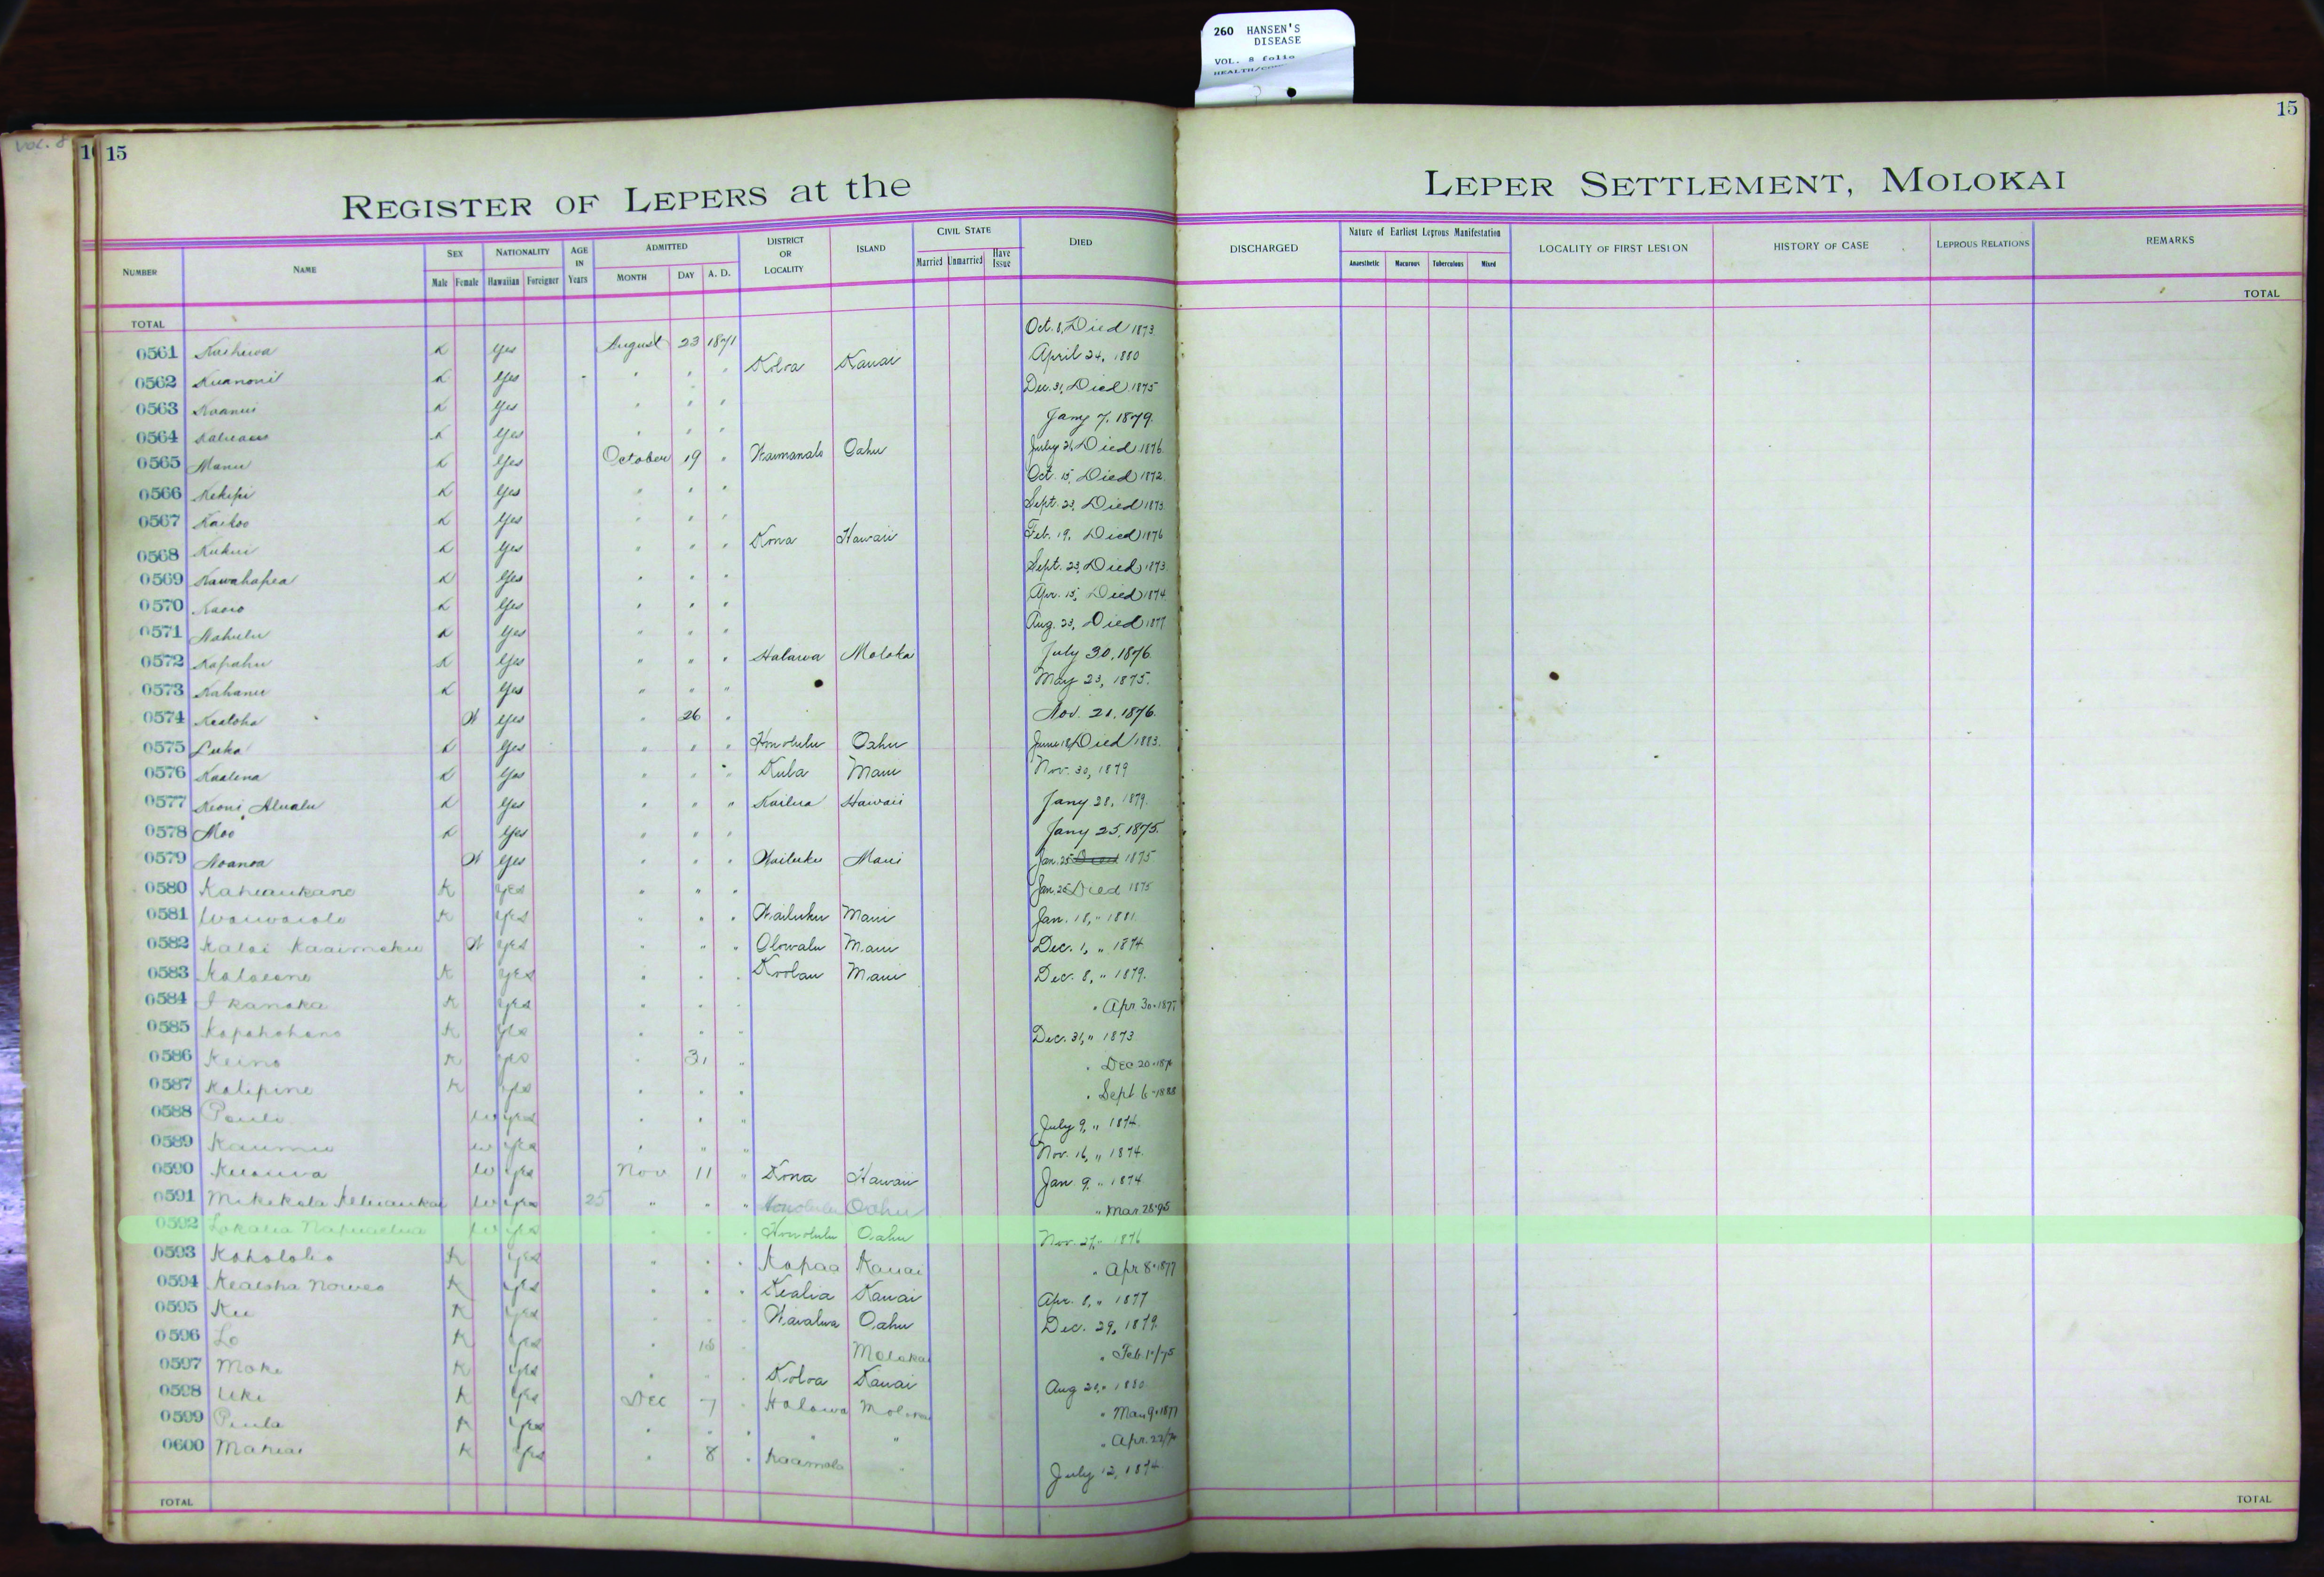 260 HANSEN'S
DISEASE
VOL. 8 folio
VOL. 8
15
15
REGISTER OF LEPERS at the LEPER SETTLEMENT, MOLOKAI
NUMBER NAME SEX Male Female NATIONALITY Hawaiian Foreigner AGE IN Years ADMITTED MONTH DAY A. D. DISTRICT OR LOCALITY ISLAND CIVIL STATE Married Unmarried Have Issue DIED DISCHARGED Nature of Earliest Leprous Manifestation Anaesthetic Macurous Tuberculous Mixed LOCALITY OF FIRST LESION HISTORY OF CASE LEPROUS RELATIONS REMARKS
TOTAL TOTAL
0561 K Yes August 23 1871 Oct. 8, Died 1873
0562 K Yes " " " Koloa Kauai April 24, 1880
0563 K Yes " " " Dec. 31, Died 1875
0564 K Yes " " " Jany 7, 1879.
0565 Manu K Yes October 19 " Waimanalo Oahu July 21, Died 1876
0566 Kekipi K Yes " " " Oct. 15, Died 1872
0567 Kaikoo K Yes " " " Sept. 23, Died 1873
0568 Kukui K Yes " " " Kona Hawaii Feb. 19, Died 1876
0569 Kawahapea K Yes " " " Sept. 23, Died 1873
0570 K Yes " " " Apr. 15, Died 1874
0571 Nahulu K Yes " " " Aug. 23, Died 1877
0572 Kapahu K Yes " " " Halawa Moloka July 30, 1876
0573 Kahanu K Yes " " " May 23, 1875.
0574 Kealoha W Yes " 26 " Nov. 21, 1876.
0575 Luka K Yes " " " Honolulu Oahu June 18, Died 1883.
0576 Kaalena K Yes " " " Kula Maui Nov. 30, 1879
0577 Keoni Alualu K Yes " " " Kailua Hawaii Jany 28, 1879
0578 Moo K Yes " " " Jany 25, 1875.
0579 Noanoa W Yes " " " Wailuku Maui Jan. 25 Died 1875
0580 Kahiaukane K Yes " " " Jan. 25 Died 1875
0581 Waiwaiole K Yes " " " Wailuku Maui Jan. 18, " 1881.
0582 Kalai Kaaimoku W Yes " " " Olowalu Maui Dec. 1, " 1874
0583 K Yes " " " Koolau Maui Dec. 8, " 1879.
0584 Ikanaka K Yes " " " " Apr 30-1877
0585 K Yes " " " Dec. 31, " 1873
0586 Keino K Yes " 31 " " Dec 20-
0587 Kalipine K Yes " " " " Sept 6-1888
0588 Pauli W Yes " " " July 9, " 1874
0589 Kaumu W Yes " " " Nov. 16, " 1874.
0590 W Yes Nov 11 " Kona Hawaii Jan 9, " 1874
0591 Mikikola W Yes 25 " " " Honolulu Oahu " Mar. 28-95
0592 Lokalia W Yes " " " Honolulu Oahu Nov. 27, " 1876
0593 Kaholokio K Yes " " " Kapaa Kauai " Apr 8-1877
0594 Kealoha K Yes " " " Kealia Kauai Apr. 8, " 1877
0595 Ku K Yes " " " Waialua Oahu Dec. 29, 1879
0596 Lo K Yes " 18 " Molokai " Feb.
0597 Moke K Yes " " " Koloa Kauai Aug 20, " 1880
0598 Uki K Yes Dec 7 " Halawa Molokai " Mar 9-1877
0599 Paula K Yes " " " " " " Apr. 22/
0600 Mahiai K Yes " 8 " Kaamola " July 12, 1874
TOTAL TOTAL